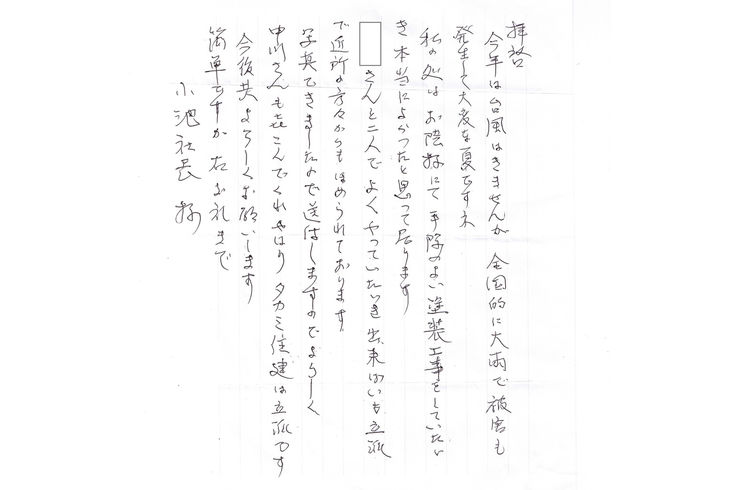 拝啓
今年は台風はきませんが 全国的に大雨で被害も
発生して大変な夏ですネ
私の処は お陰様にて 手際のよい塗装工事をしていただ
き 本当によかったと思って居ります
さんと二人で よくやっていただき 出来ばいも立派
で近所の方々からもほめられております
写真できましたので送付しますのでよろしく
中川さんも喜こんでくれ やはり タカミ住建は立派です
今後共よろしくお願いします
簡単ですが 右お礼まで
小池社長 様